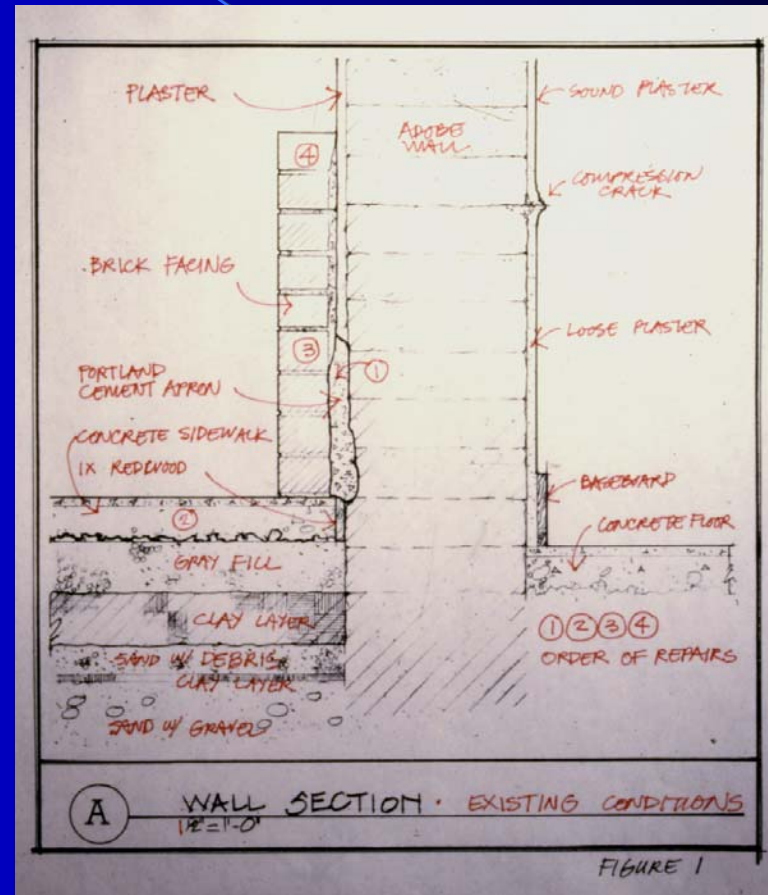 PLASTER
SOUND PLASTER
ADOBE
WALL
④
COMPRESSION
CRACK
BRICK FACING
LOOSE PLASTER
③
①
PORTLAND
CEMENT APRON
CONCRETE SIDEWALK
1X REDWOOD
BASEBOARD
②
CONCRETE FLOOR
GRAY FILL
CLAY LAYER
①②③④
ORDER OF REPAIRS
SAND W/ DEBRIS
CLAY LAYER
SAND W/ GRAVEL
A
WALL SECTION · EXISTING CONDITIONS
1½"=1'-0"
FIGURE 1